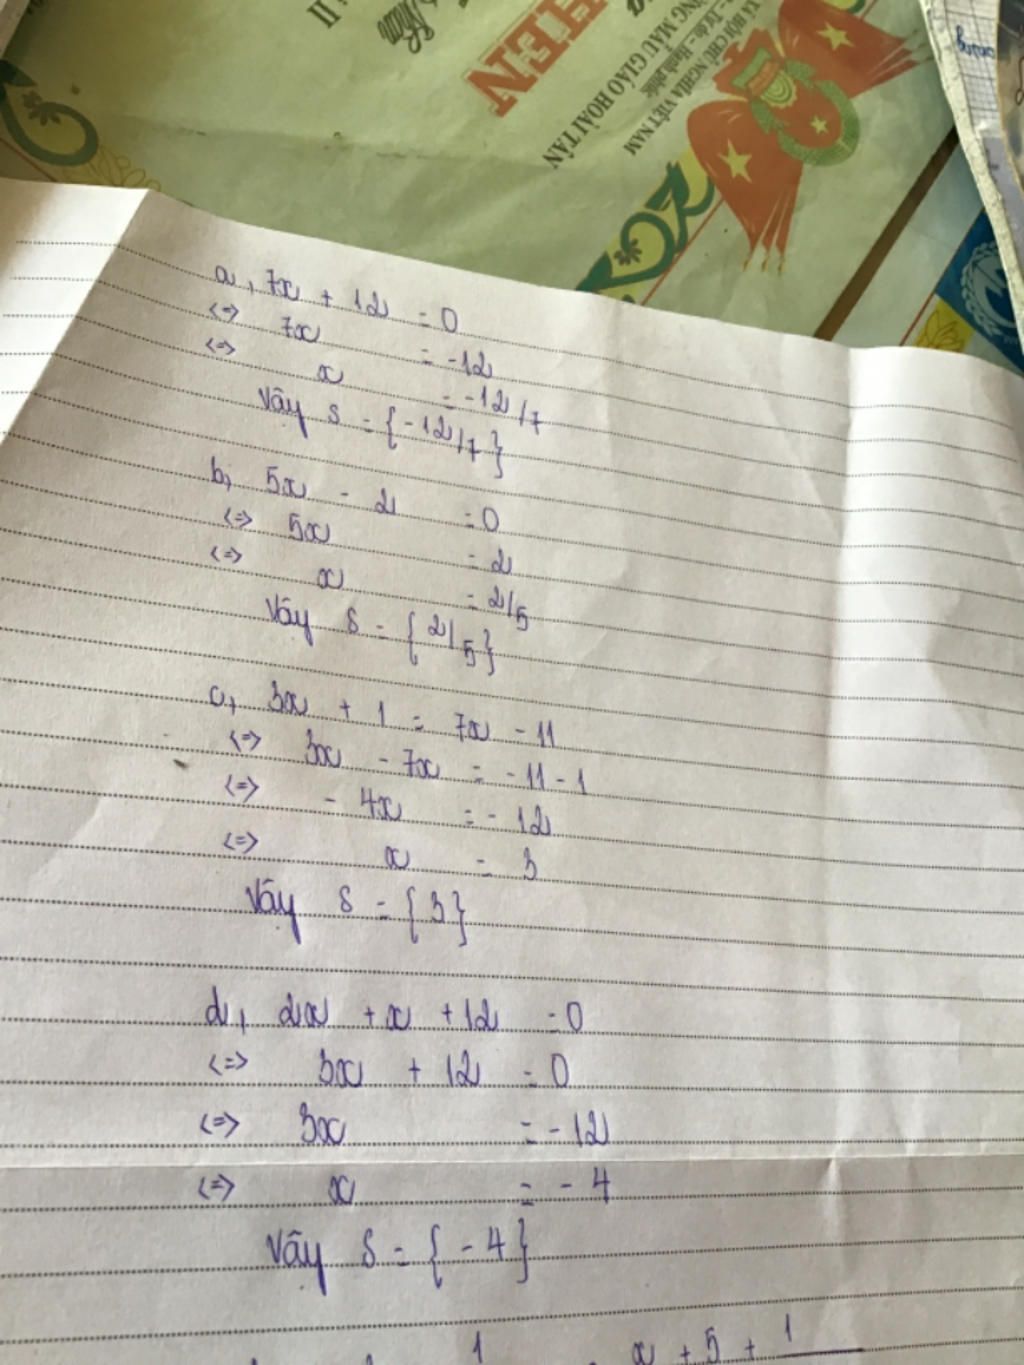 XÃ HỘI CHỦ NGHĨA VIỆT NAM
Hạnh phúc
MẪU GIÁO HOÀI TÂN
II
a, 7x + 12 = 0
<=> 7x = -12
<=> x = -12/7
Vậy S = {-12/7}
b, 5x - 2 = 0
<=> 5x = 2
<=> x = 2/5
Vậy S = {2/5}
c, 3x + 1 = 7x - 11
<=> 3x - 7x = -11 - 1
<=> - 4x = - 12
<=> x = 3
Vậy S = {3}
d, 2x + x + 12 = 0
<=> 3x + 12 = 0
<=> 3x = - 12
<=> x = - 4
Vậy S = {- 4}
1 x + 5 + 1